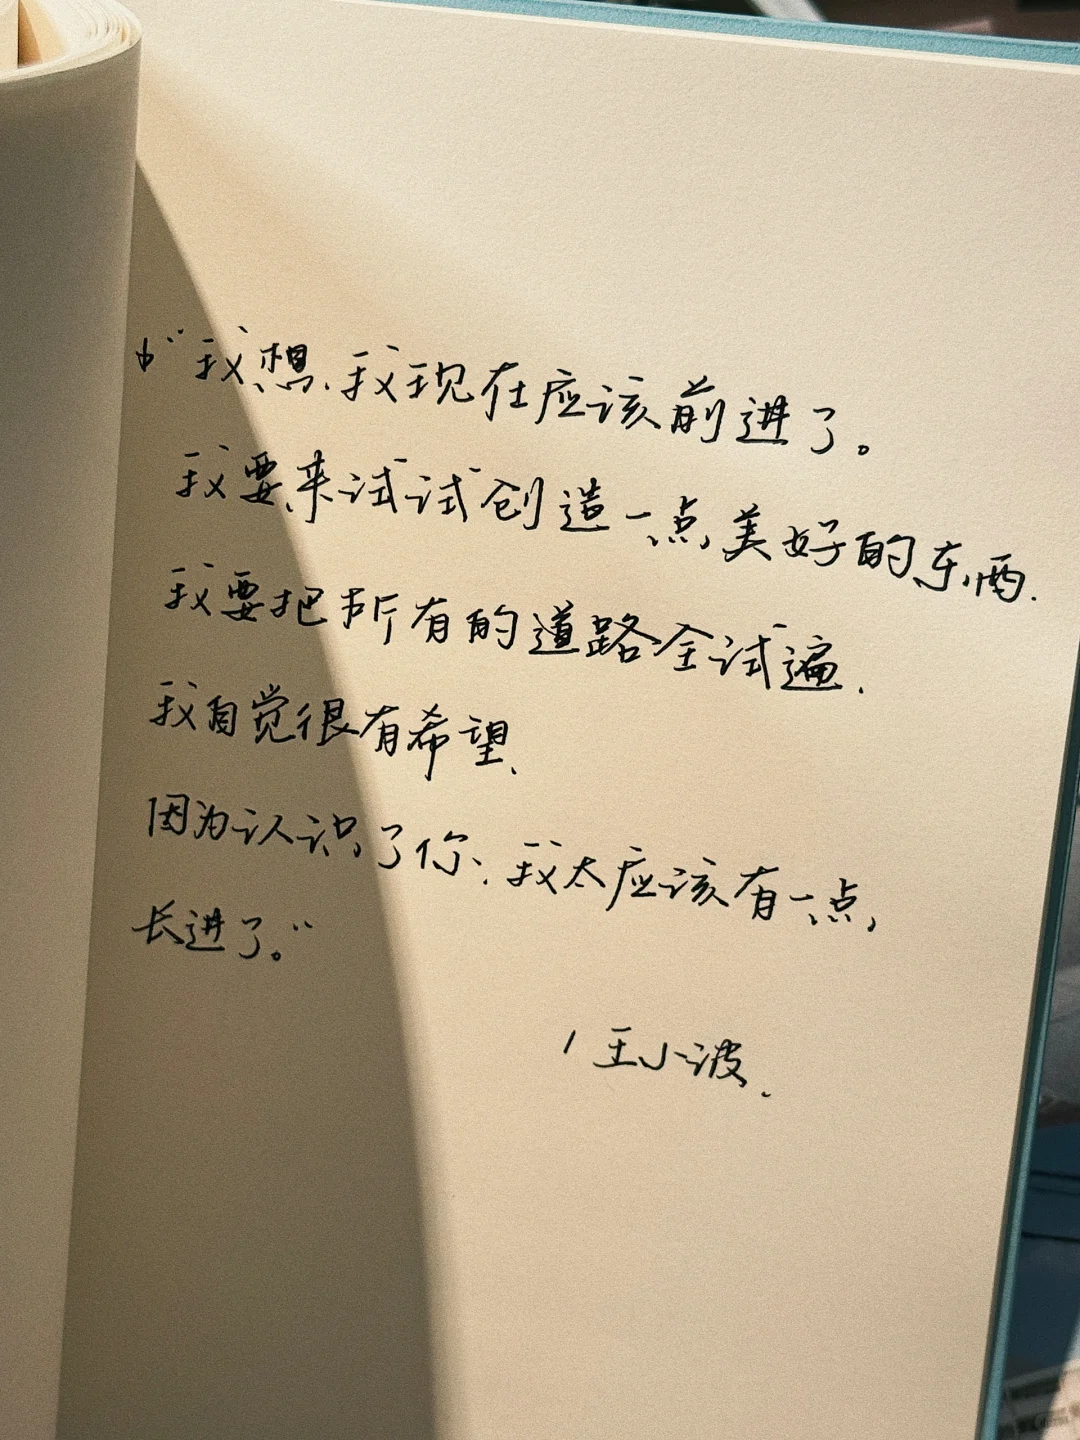 “我想，我现在应该前进了。
我要来试试创造一点美好的东西.
我要把所有的道路全试遍.
我自觉很有希望，
因为认识了你、我太应该有一点
长进了。”
/王小波.